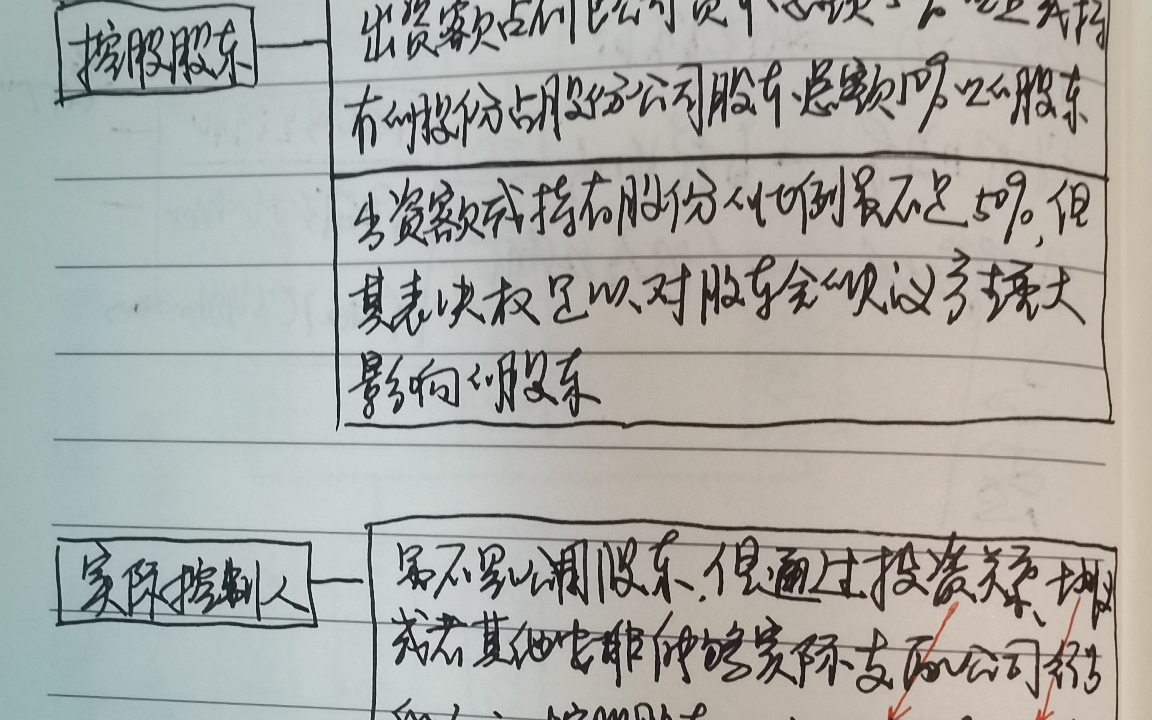 控股股东
出资额占有限公司资本总额50%以上或持
有的股份占股份公司股本总额50%以的股东
出资额或持有股份的比例虽不足50%,但
其表决权足以对股东会的决议产生重大
影响的股东
实际控制人
虽不是公司股东,但通过投资关系、协议
或者其他安排能够实际支配公司行为